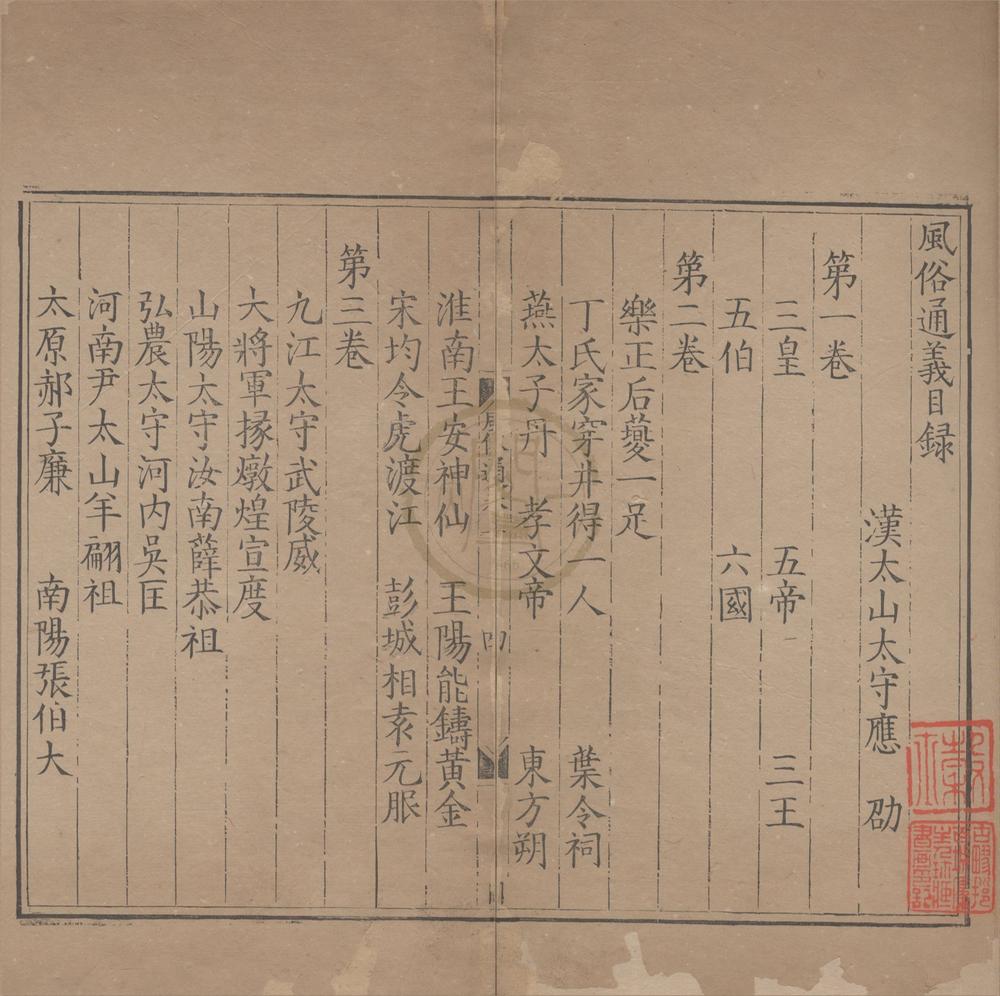 風俗通義目録
漢太山太守應　劭
第一卷
三皇　五帝　三王
五伯　六國
第二卷
樂正后夔一足
丁氏家穿井得一人　葉令祠
燕太子丹　孝文帝　東方朔
淮南王安神仙　王陽能鑄黄金
宋均令虎渡江　彭城相袁元服
第三卷
九江太守武陵威
大將軍掾燉煌宣度
山陽太守汝南薛恭祖
弘農太守河内吳匡
河南尹太山羊翩祖
太原郝子廉　南陽張伯大